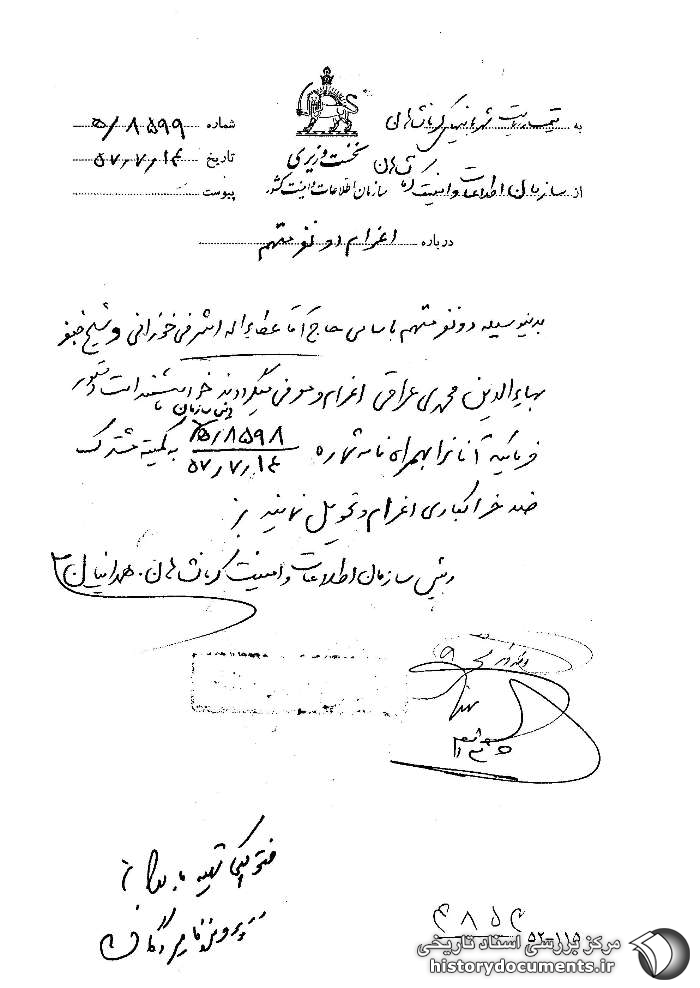 به ریاست شهربانی کرمانشاهان
شماره ۸۵۹۹/۵
تاریخ ۵۷٫۷٫۱۴
نخست وزیری
از سازمان اطلاعات و امنیت کرمانشاهان
سازمان اطلاعات و امنیت کشور
پیوست
درباره اعزام دو نفر متهم
بدینوسیله دو نفر متهم باسامی حاج آقا عطاءاله اشرفی خوزانی و شیخ
بهاءالدین محمدی عراقی اعزام و معرفی میگردند خواهشمند است دستور
فرمائید آنانرا بهمراه نامه شماره ۸۵۹۸/۵ ۵۷٫۷٫۱۴ این سازمان به کمیته مشترک
ضد خرابکاری اعزام و تحویل نمایند
رئیس سازمان اطلاعات و امنیت کرمانشاهان.
فتوکپی تهیه
۵۲-۱۱۵
مرکز بررسی اسناد تاریخی
historydocuments.ir